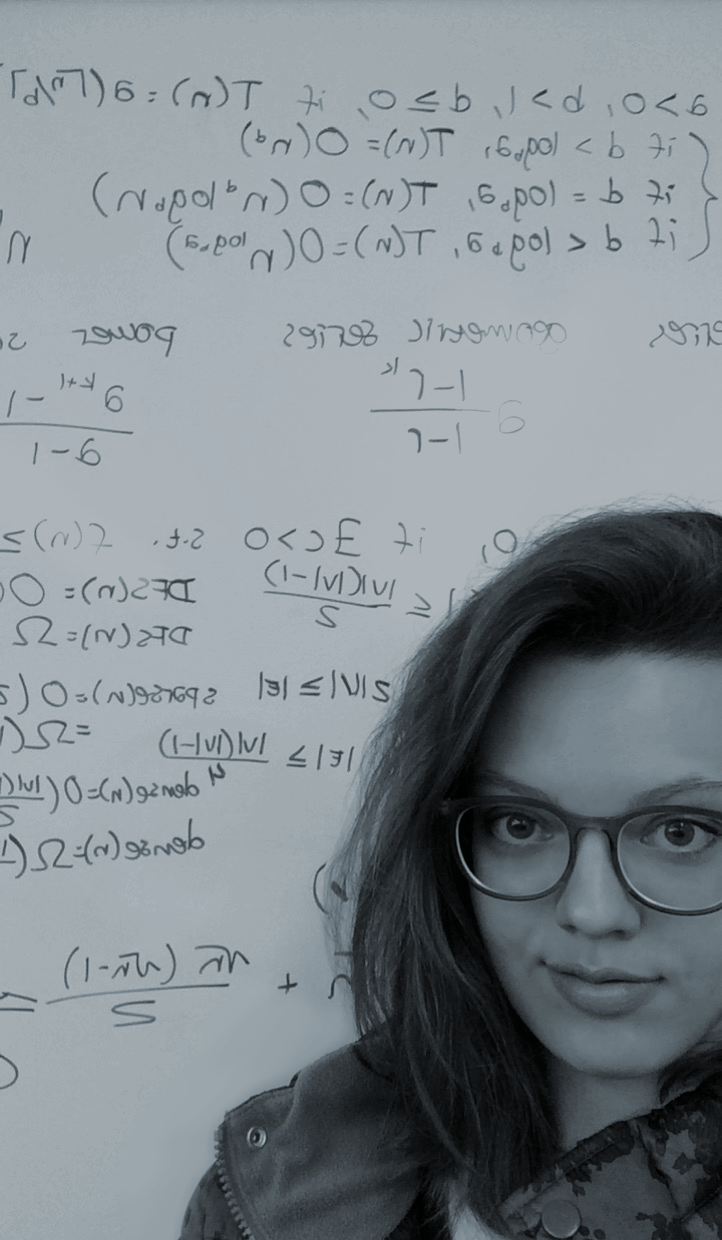 a>0, b>1, d≥0, if T(n)=a(⌈n/b⌉
if d > log_b a, T(n)=O(n^d)
if d = log_b a, T(n)=O(n^d log_b n)
if d < log_b a, T(n)=O(n^{log_b a}) n
geometric series power
a (1-r^k)/(1-r) (a^{k+1}-1)/(a-1)
0, if ∃c>0 s.t. f(n) ≥
≥ |V|(|V|-1)/2 DFS(n)=O
DFS(n)=Ω
2|V| ≥ |E| sparse(n)=O(
=Ω(
|E| ≥ |V|(|V|-1)/4 dense(n)=O(|V|(
dense(n)=Ω(
+ √n(√n-1)/2 =